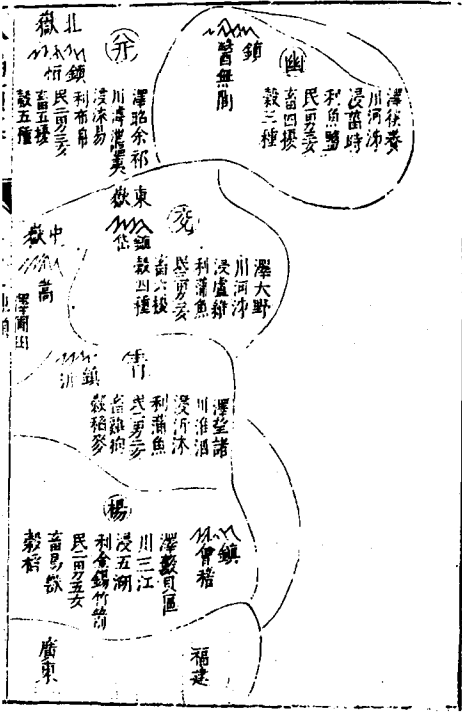 幽
鎮
醫無閭
川河泲
浸菑時
利魚鹽
民一男三女
畜四擾
穀三種
并
北嶽
鎮
澤昭余祁
浸淶易
利布帛
民二男三女
畜五擾
穀五種
兗
東嶽
鎮
岱
澤大野
川河泲
浸盧維
利蒲魚
民二男三女
畜六擾
穀四種
中嶽
嵩
青
鎮
沂
澤望諸
川淮泗
浸沂沭
利蒲魚
民二男三女
畜雞狗
穀稻麥
楊
鎮
會稽
澤藪具區
川三江
浸五湖
利金錫竹箭
民二男五女
畜鳥獸
穀稻
福建
廣東